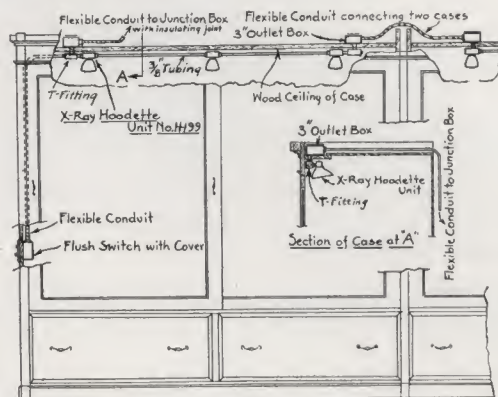 Flexible Conduit to Junction Box
with insulating joint
Flexible Conduit connecting two cases
3" Outlet Box
A
3/8" Tubing
T-Fitting
Wood Ceiling of Case
X-Ray Hoodette
Unit No. H99
3" Outlet Box
X-Ray Hoodette
Unit
T-Fitting
Section of Case at "A"
Flexible Conduit to Junction Box
Flexible Conduit
Flush Switch with Cover